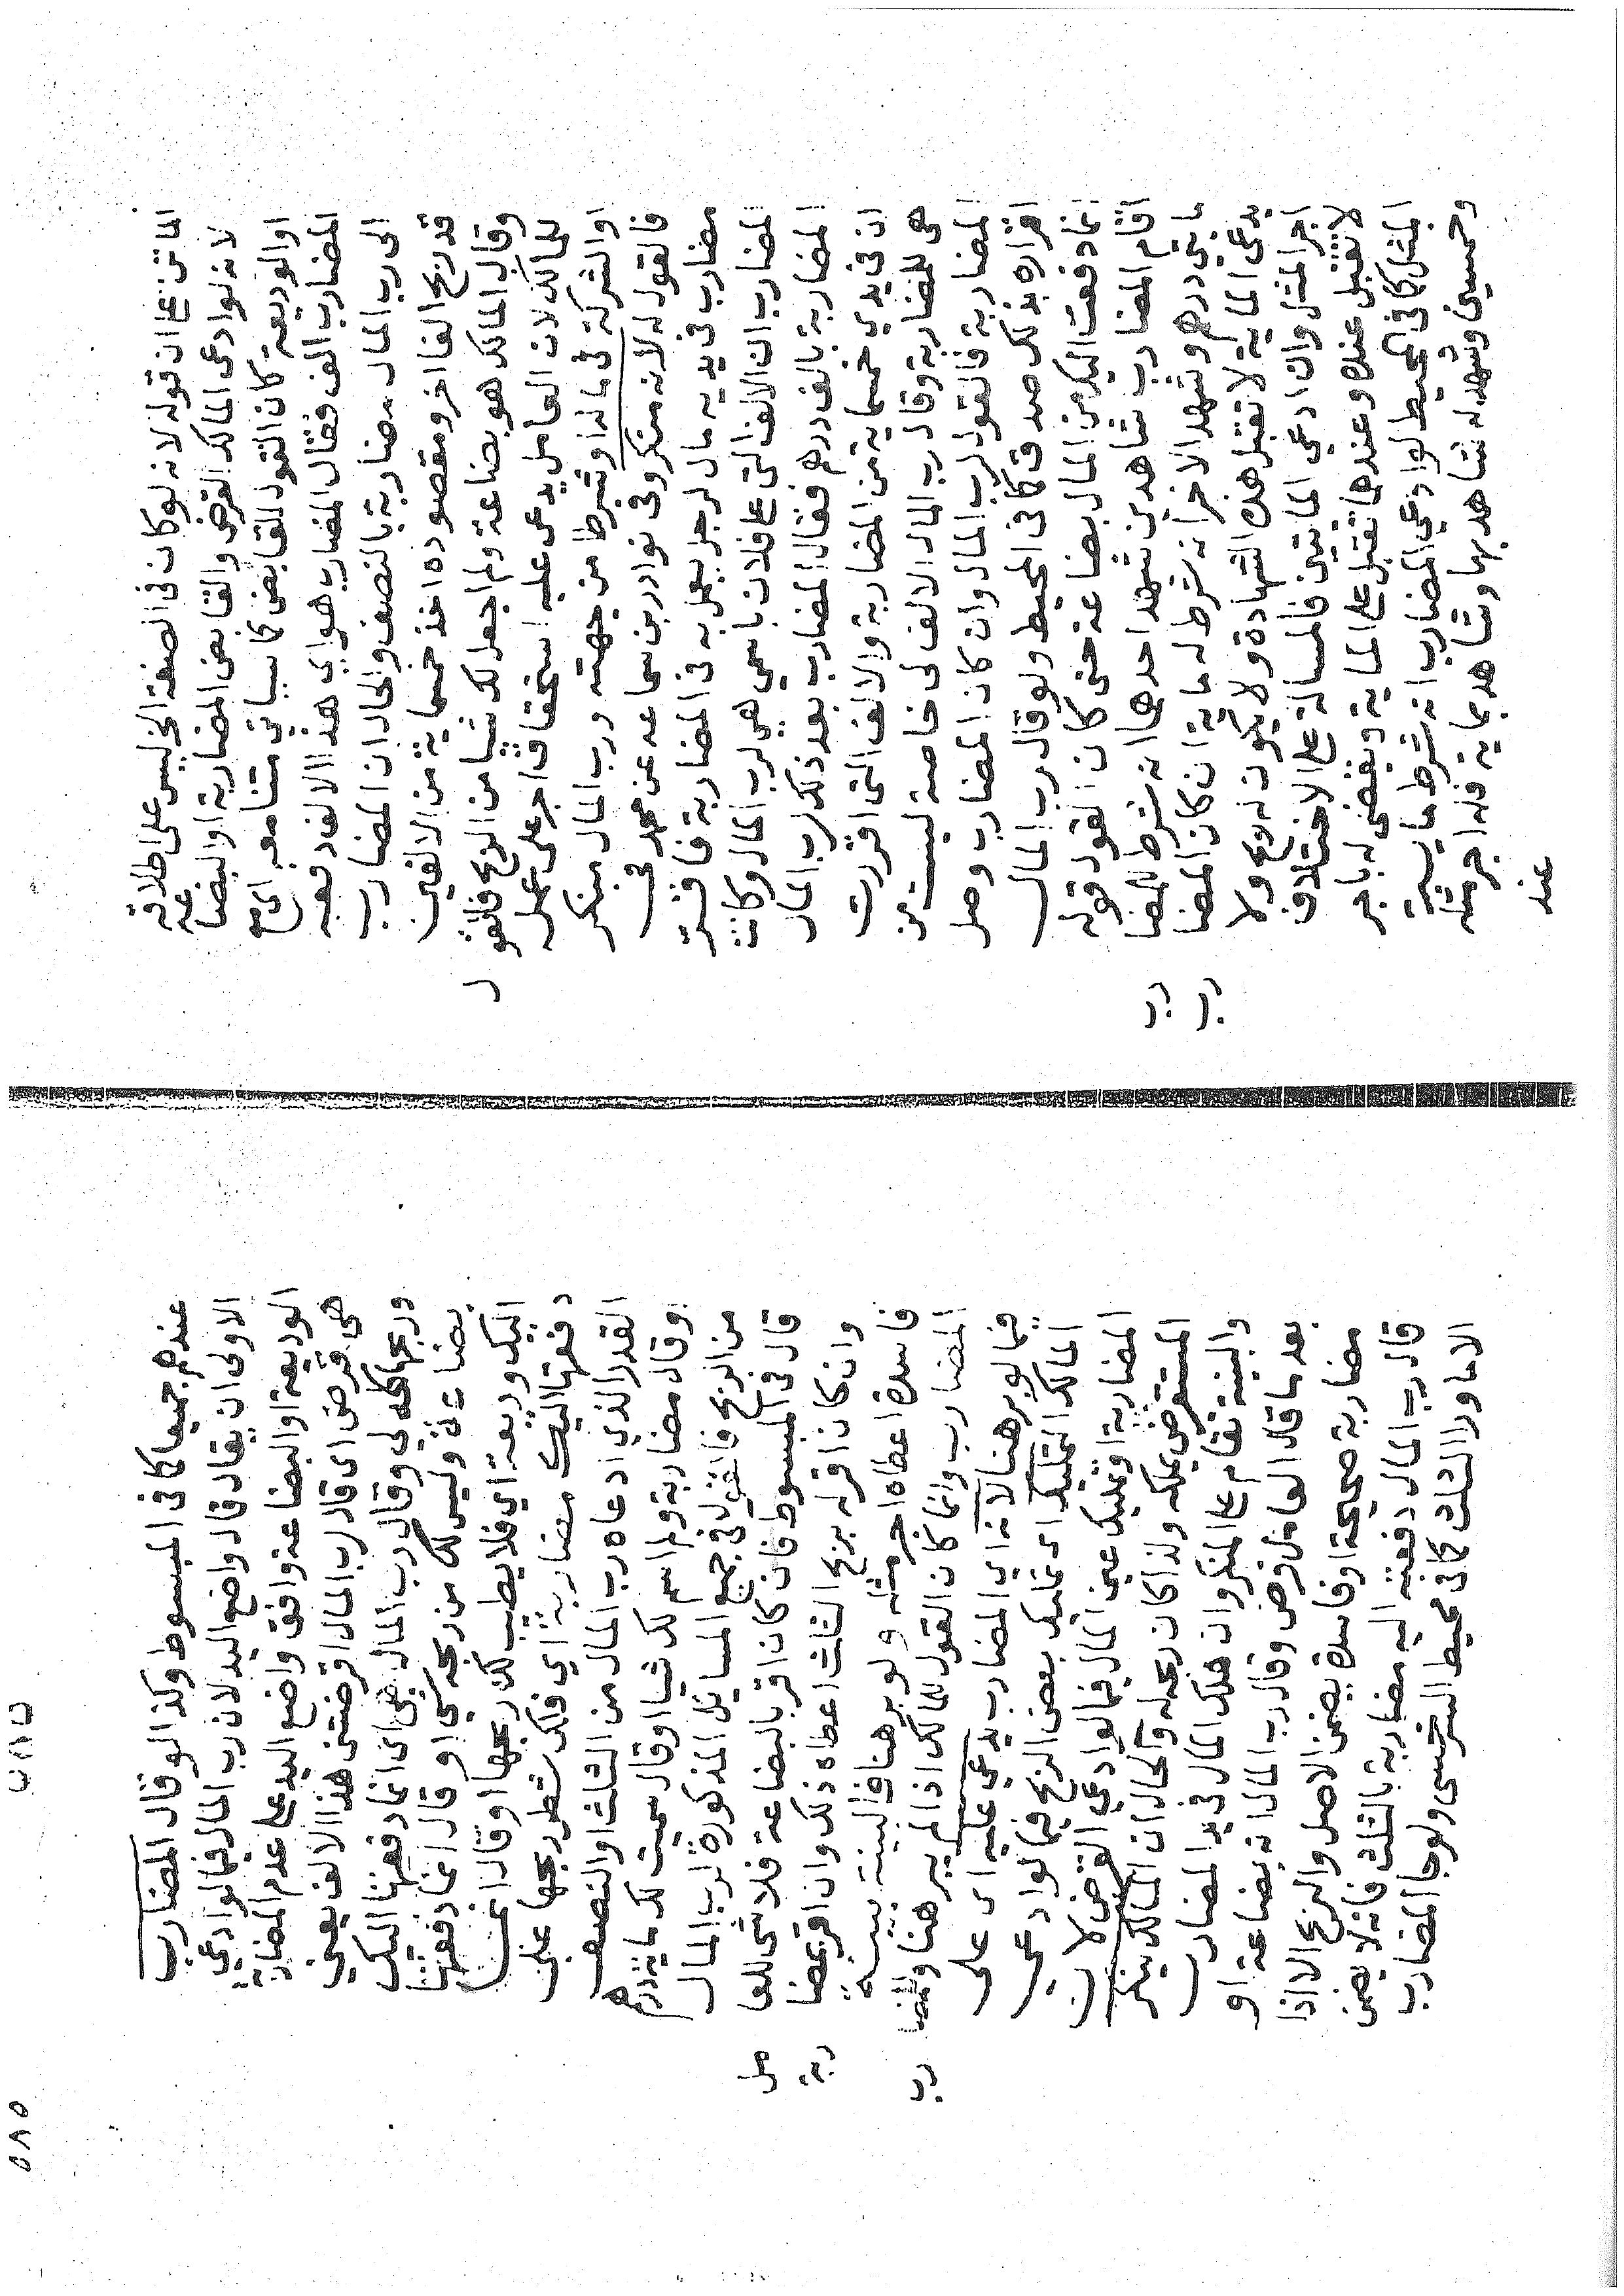 الماتن علم ان قوله لانه لو كان في الصنعة الخ ليس على اطلاقه
لانه لو ادعى المالك القرض والقابض المضاربة او البضاعة
او الوديعة كان القول للقابض كما سياتي متنا معه اي مع
المضارب الف فقال المضارب هو اي هذا الالف دفعه
الى رب المال مضاربة بالنصف والحال ان المضارب
قد ربح الفا اخر ومقصوده اخذ خمسماية من الالفين
وقال المالك هو بضاعة ولم اجعل لك شيا من الربح فالقول
للمالك لان العامل يدعي عليه استحقاق اجر على عمله
او الشركة في ماله او شرط من جهته ورب المال ينكر
فالقول له لانه منكر وفي نوادر بن سماعه عن محمد في
مضارب في يديه مال لرجل يعمل به في المضاربة فاقر
المضارب ان الالف التي على فلان باسمي هي لرب المال وكانت
المضاربة بالف درهم فقال المضارب بعد ذلك لرب المال
ان في يدي خمسماية من المضاربة والالف التي اقررت
هي للمضاربة وقال رب المال الالف لي خاصة ليست من
المضاربة فالقول لرب المال وان كان المضارب وصل
اقراره بذلك صدق كما في المحيط ولو قال رب المال
انما دفعت اليك من المال بضاعة حتى كان القول قوله
اقام المضارب شاهدين شهد احدهما انه شرط للمضارب
مايتي درهم وشهد الاخر انه شرط له ماية ان كان المضارب
يدعي الماية لا تقبل هذه الشهادة ولا يكون له ربح ولا
اجر المثل وان ادعي المايتين فالمسالة على الاختلاف
لا تقبل عنده وعندهما تقبل على الماية ويقضي له باجر
المثل كما في المحيط لو ادعي المضارب انه شرط ماية
وخمسين وشهد له شاهد بها وشاهد بماية فله اجر مثله
عند
عندهم جميعا كما في المبسوط وكذا لو قال المضارب
الاولى ان يقال قال واضع اليد لان رب المال فيما لو ادعي
الوديعة او البضاعة وافق واضع اليد على عدم المضاربة
هي قرض اي قال رب المال اقرضتني هذا الالف يعني
وربحها كله لي وقال رب المال هي اي انما دفعتها اليك
بضاعة وليس لك من ربحه شي او قال انما دفعتها
اليك وديعة اي فلا يطيب لك ربحها او قال انما
دفعتها اليك مضاربة اي فلك شطر ربحها على
القدر الذي ادعاه رب المال من الثلث او النصف
وقال مضاربة ولم اسم لك شيا او قال سميت لك ماية درهم
من الربح فالقول في جميع المسايل المذكورة لرب المال
قال في المبسوط فان كان اقر بالبضاعة فلا شي للعامل
وان كان اقر له بربح الثلث اعطاه ذلك وان اقر بمضاربة
فاسدة اعطاه اجر مثله ولو برهنا فالبينة بينة
المضارب وانما كان القول للمالك اذا لم يبرهنا وللمضارب
فيما لو برهنا لانه اي المضارب يدعي عليه اي على
المالك التمليك اي تمليك بعض الربح فيما لو ادعي
المضاربة او تمليك عين المال فيما لو ادعي القرض لان
المستقرض يملكه ولذا كان ربحه له والحال ان المالك ينكر
والبينة تقام على المنكر وان هلك المال في يد المضارب
بعد ما قال العامل قرض وقال رب المال انه بضاعة او
مضاربة صحيحة او فاسدة يضمن الاصل والربح الا اذا
قال رب المال دفعته اليه مضاربة بالثلث فانه لا يضمن
الا ما ورا الثلث كما في محيط السرخسي ولو جا المضارب